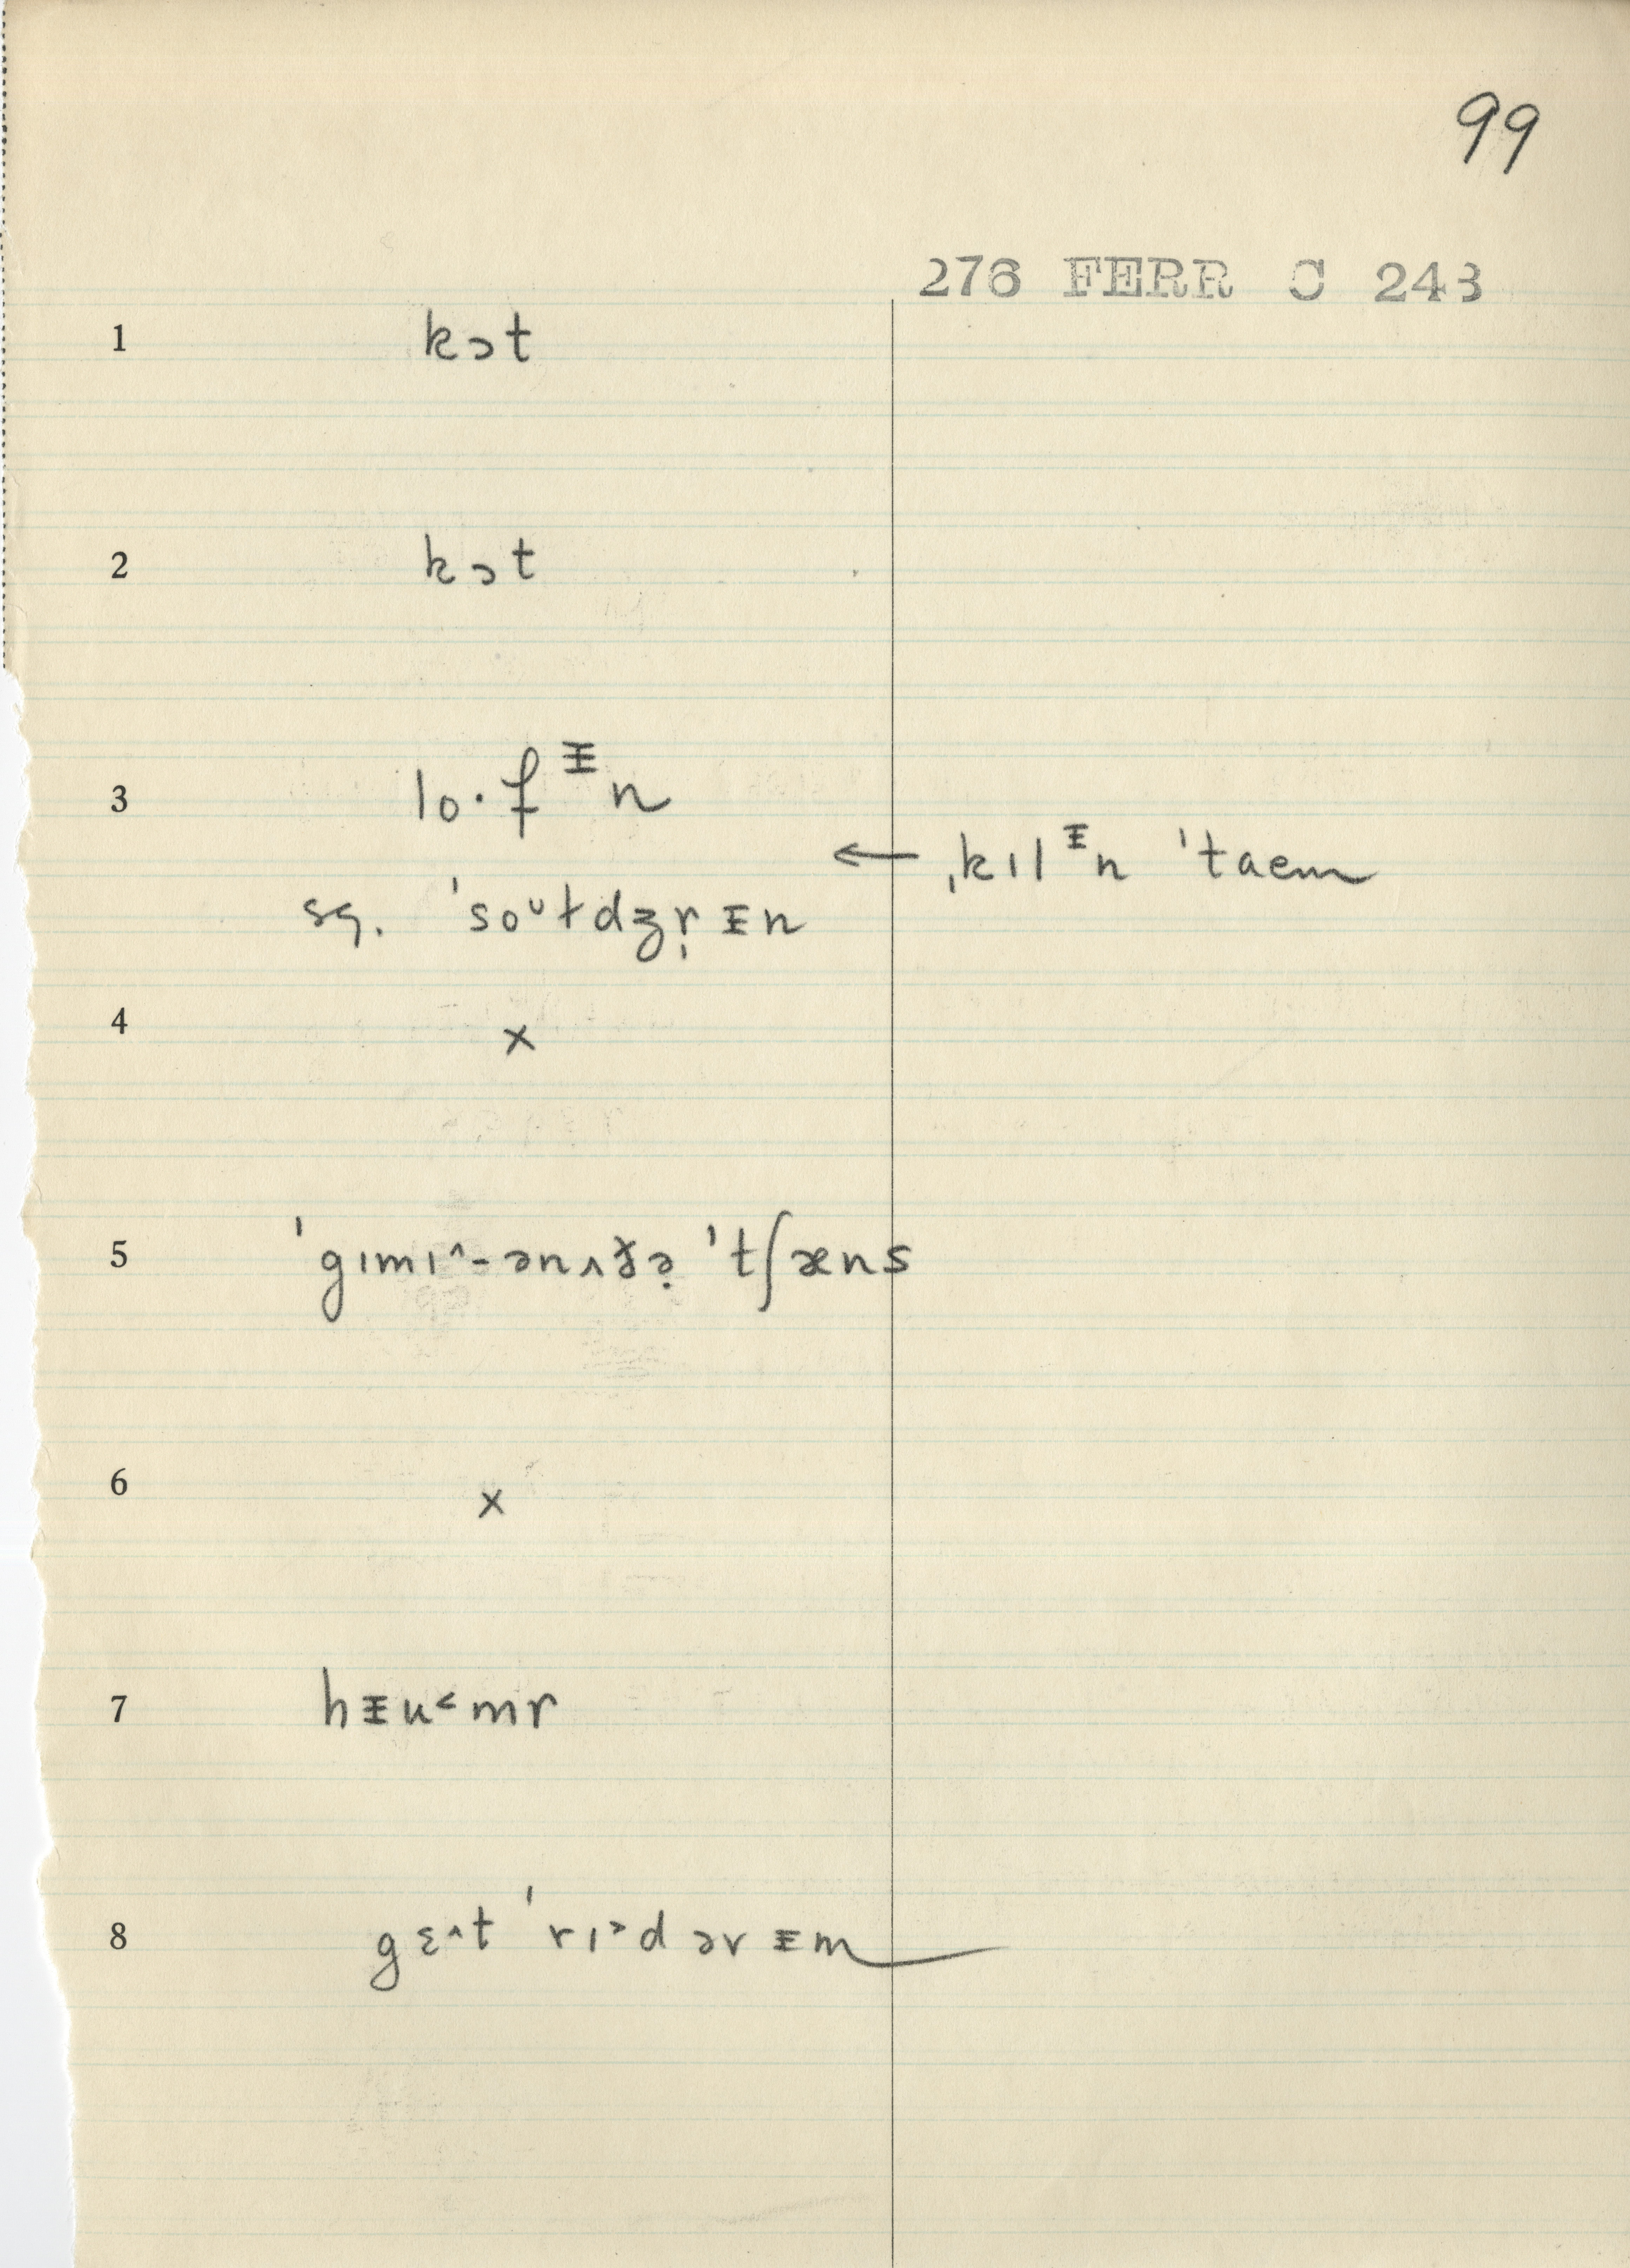 99
276 FERR C 243
1 kɔt
2 kɔt
3 lo·f ᵻn
← ˌkɪl ᵻn ˈtaem
sg. ˈsoᶷɫdʒr̩ ᵻn
4 x
5 ˈgɪmɪ^-ənʌðə̣ ˈtʃæns
6 x
7 hᵻu<mr
8 gɛ^t ˈrɪ>d ər ᵻm